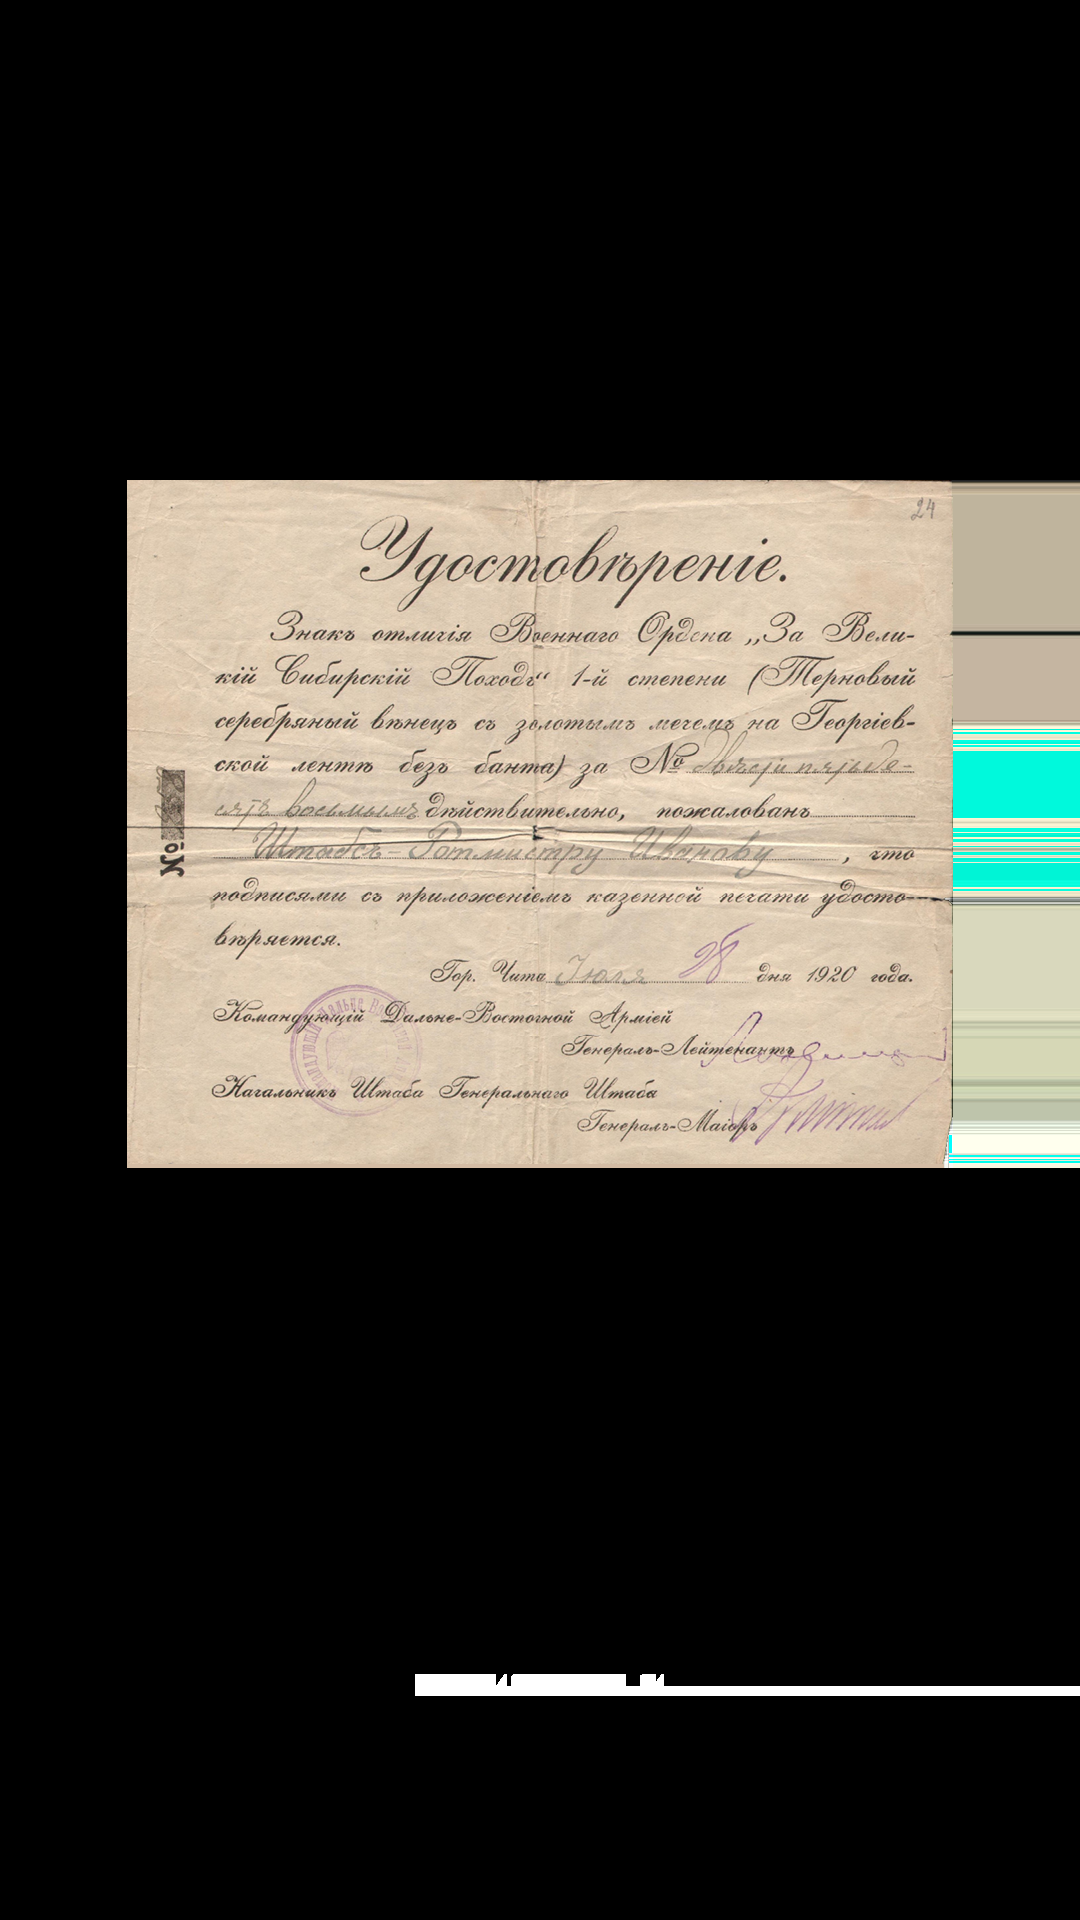 24
Удостовѣреніе.
Знакъ отличія Военнаго Ордена „За Вели-
кій Сибирскій Походъ“ 1-й степени (Терновый
серебряный вѣнецъ съ золотымъ мечемъ на Георгіев-
ской лентѣ безъ банта) за № двѣсти пятьде-
сятъ восьмымъ дѣйствительно, пожалованъ
Штабсъ-Ротмистру Иванову, что
подписями съ приложеніемъ казенной печати удосто-
вѣряется.
Гор. Чита Іюля 28 дня 1920 года.
Командующій Дальне-Восточной Арміей
Генералъ-Лейтенантъ
Начальникъ Штаба Генеральнаго Штаба
Генералъ-Маіоръ
№